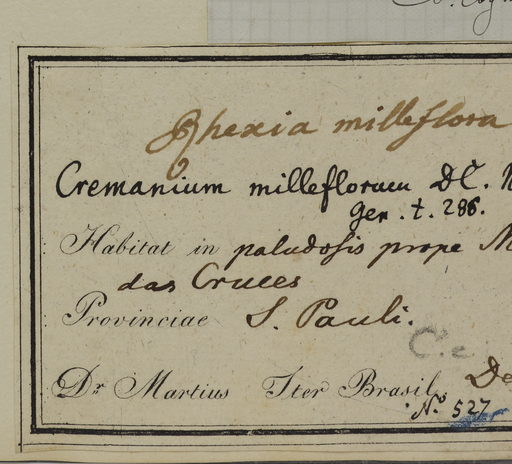 Rhexia milleflora
Cremanium milleflorum DC.
Gen. t. 286.
Habitat in paludosis prope
das Cruces
Provinciae S. Pauli.
Dr Martius Iter Brasil.
No 527